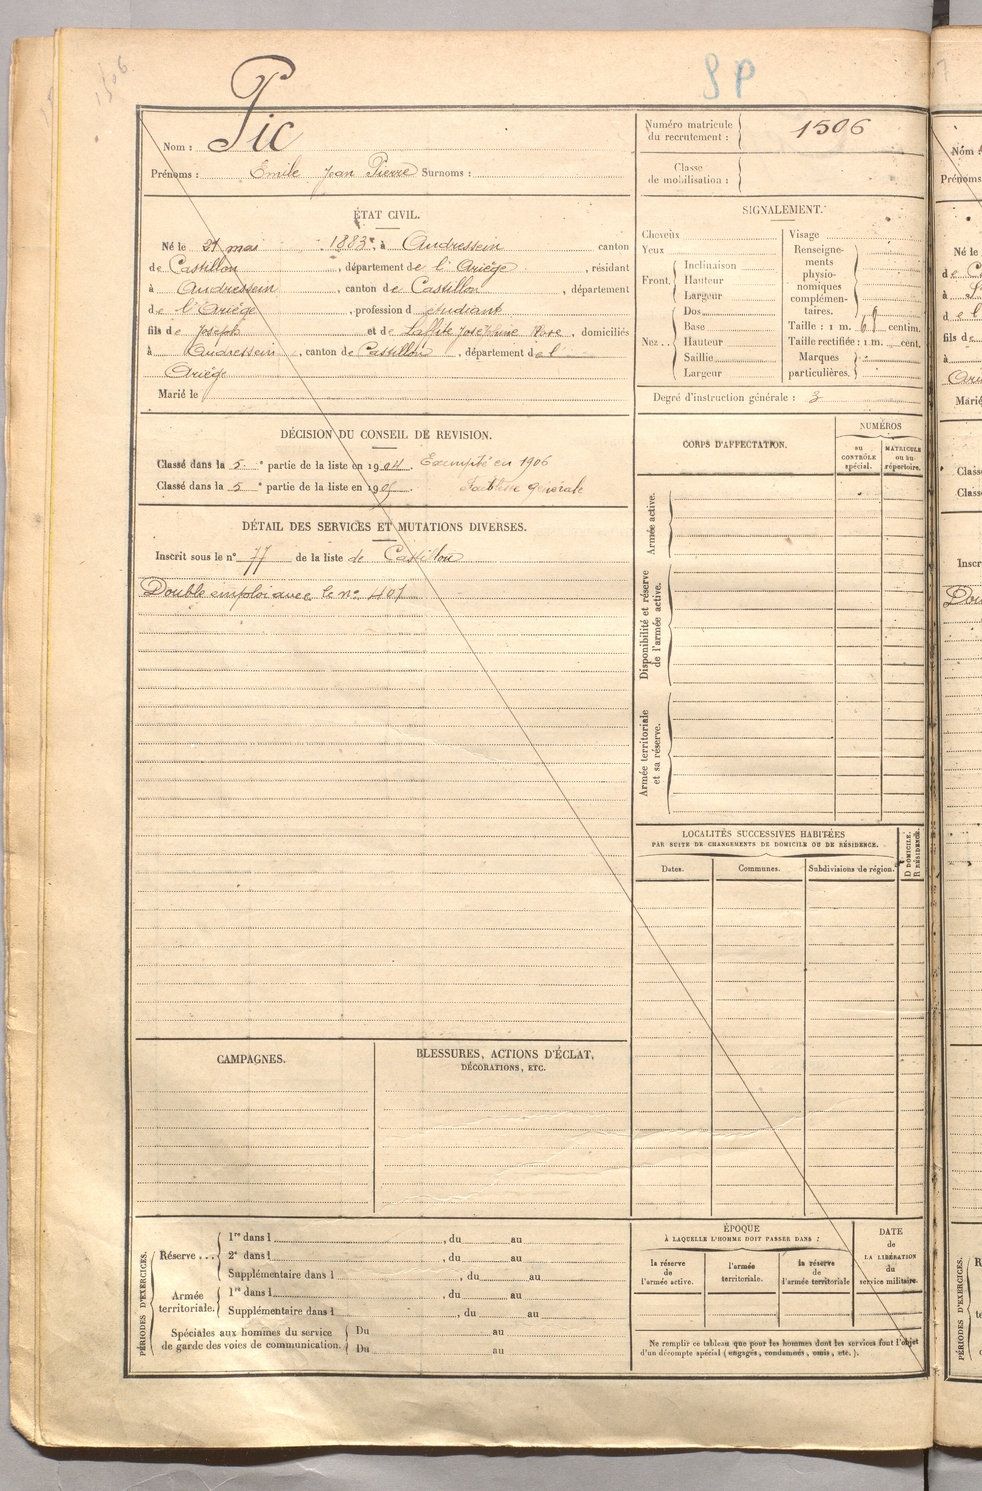 1506
S P
Nom : Pic
Prénoms : Emile Jean Pierre Surnoms :
ÉTAT CIVIL.
Né le 27 mai 1883, à Audressein canton
de Castillon, département de l'Ariège, résidant
à Audressein, canton de Castillon, département
de l'Ariège, profession d'étudiant
fils de Joseph et de Laffite Josephine Rose, domiciliés
à Audressein, canton de Castillon, département de l'
Ariège
Marié le
DÉCISION DU CONSEIL DE REVISION.
Classé dans la 5e partie de la liste en 1904. Exempté en 1906
Classé dans la 5e partie de la liste en 1905. faiblesse générale
DÉTAIL DES SERVICES ET MUTATIONS DIVERSES.
Inscrit sous le n° 77 de la liste de Castillon
Double emploi avec le n° 401
CAMPAGNES.
BLESSURES, ACTIONS D'ÉCLAT,
DÉCORATIONS, ETC.
PÉRIODES D'EXERCICES.
Réserve...
1re dans l , du au
2e dans l , du au
Supplémentaire dans l , du au
Armée
territoriale.
1re dans l , du au
Supplémentaire dans l , du au
Spéciales aux hommes du service
de garde des voies de communication.
Du au
Du au
Numéro matricule
du recrutement :
1506
Classe
de mobilisation :
SIGNALEMENT.
Cheveux
Yeux
Front.
Inclinaison
Hauteur
Largeur
Nez..
Dos
Base
Hauteur
Saillie
Largeur
Visage
Renseigne-
ments
physio-
nomiques
complémen-
taires.
Taille : 1 m. 68 centim.
Taille rectifiée : 1 m. cent.
Marques
particulières.
Degré d'instruction générale : 3
CORPS D'AFFECTATION.
NUMÉROS
au
CONTRÔLE
spécial.
MATRICULE
ou au
répertoire.
Armée active.
Disponibilité et réserve
de l'armée active.
Armée territoriale
et sa réserve.
LOCALITÉS SUCCESSIVES HABITÉES
PAR SUITE DE CHANGEMENTS DE DOMICILE OU DE RÉSIDENCE.
D DOMICILE.
R RÉSIDENCE.
Dates.
Communes.
Subdivisions de région.
ÉPOQUE
À LAQUELLE L'HOMME DOIT PASSER DANS :
la réserve
de
l'armée active.
l'armée
territoriale.
la réserve
de
l'armée territoriale
DATE
de
LA LIBÉRATION
du
service militaire.
Ne remplir ce tableau que pour les hommes dont les services font l'objet
d'un décompte spécial (engagés, condamnés, omis, etc.).